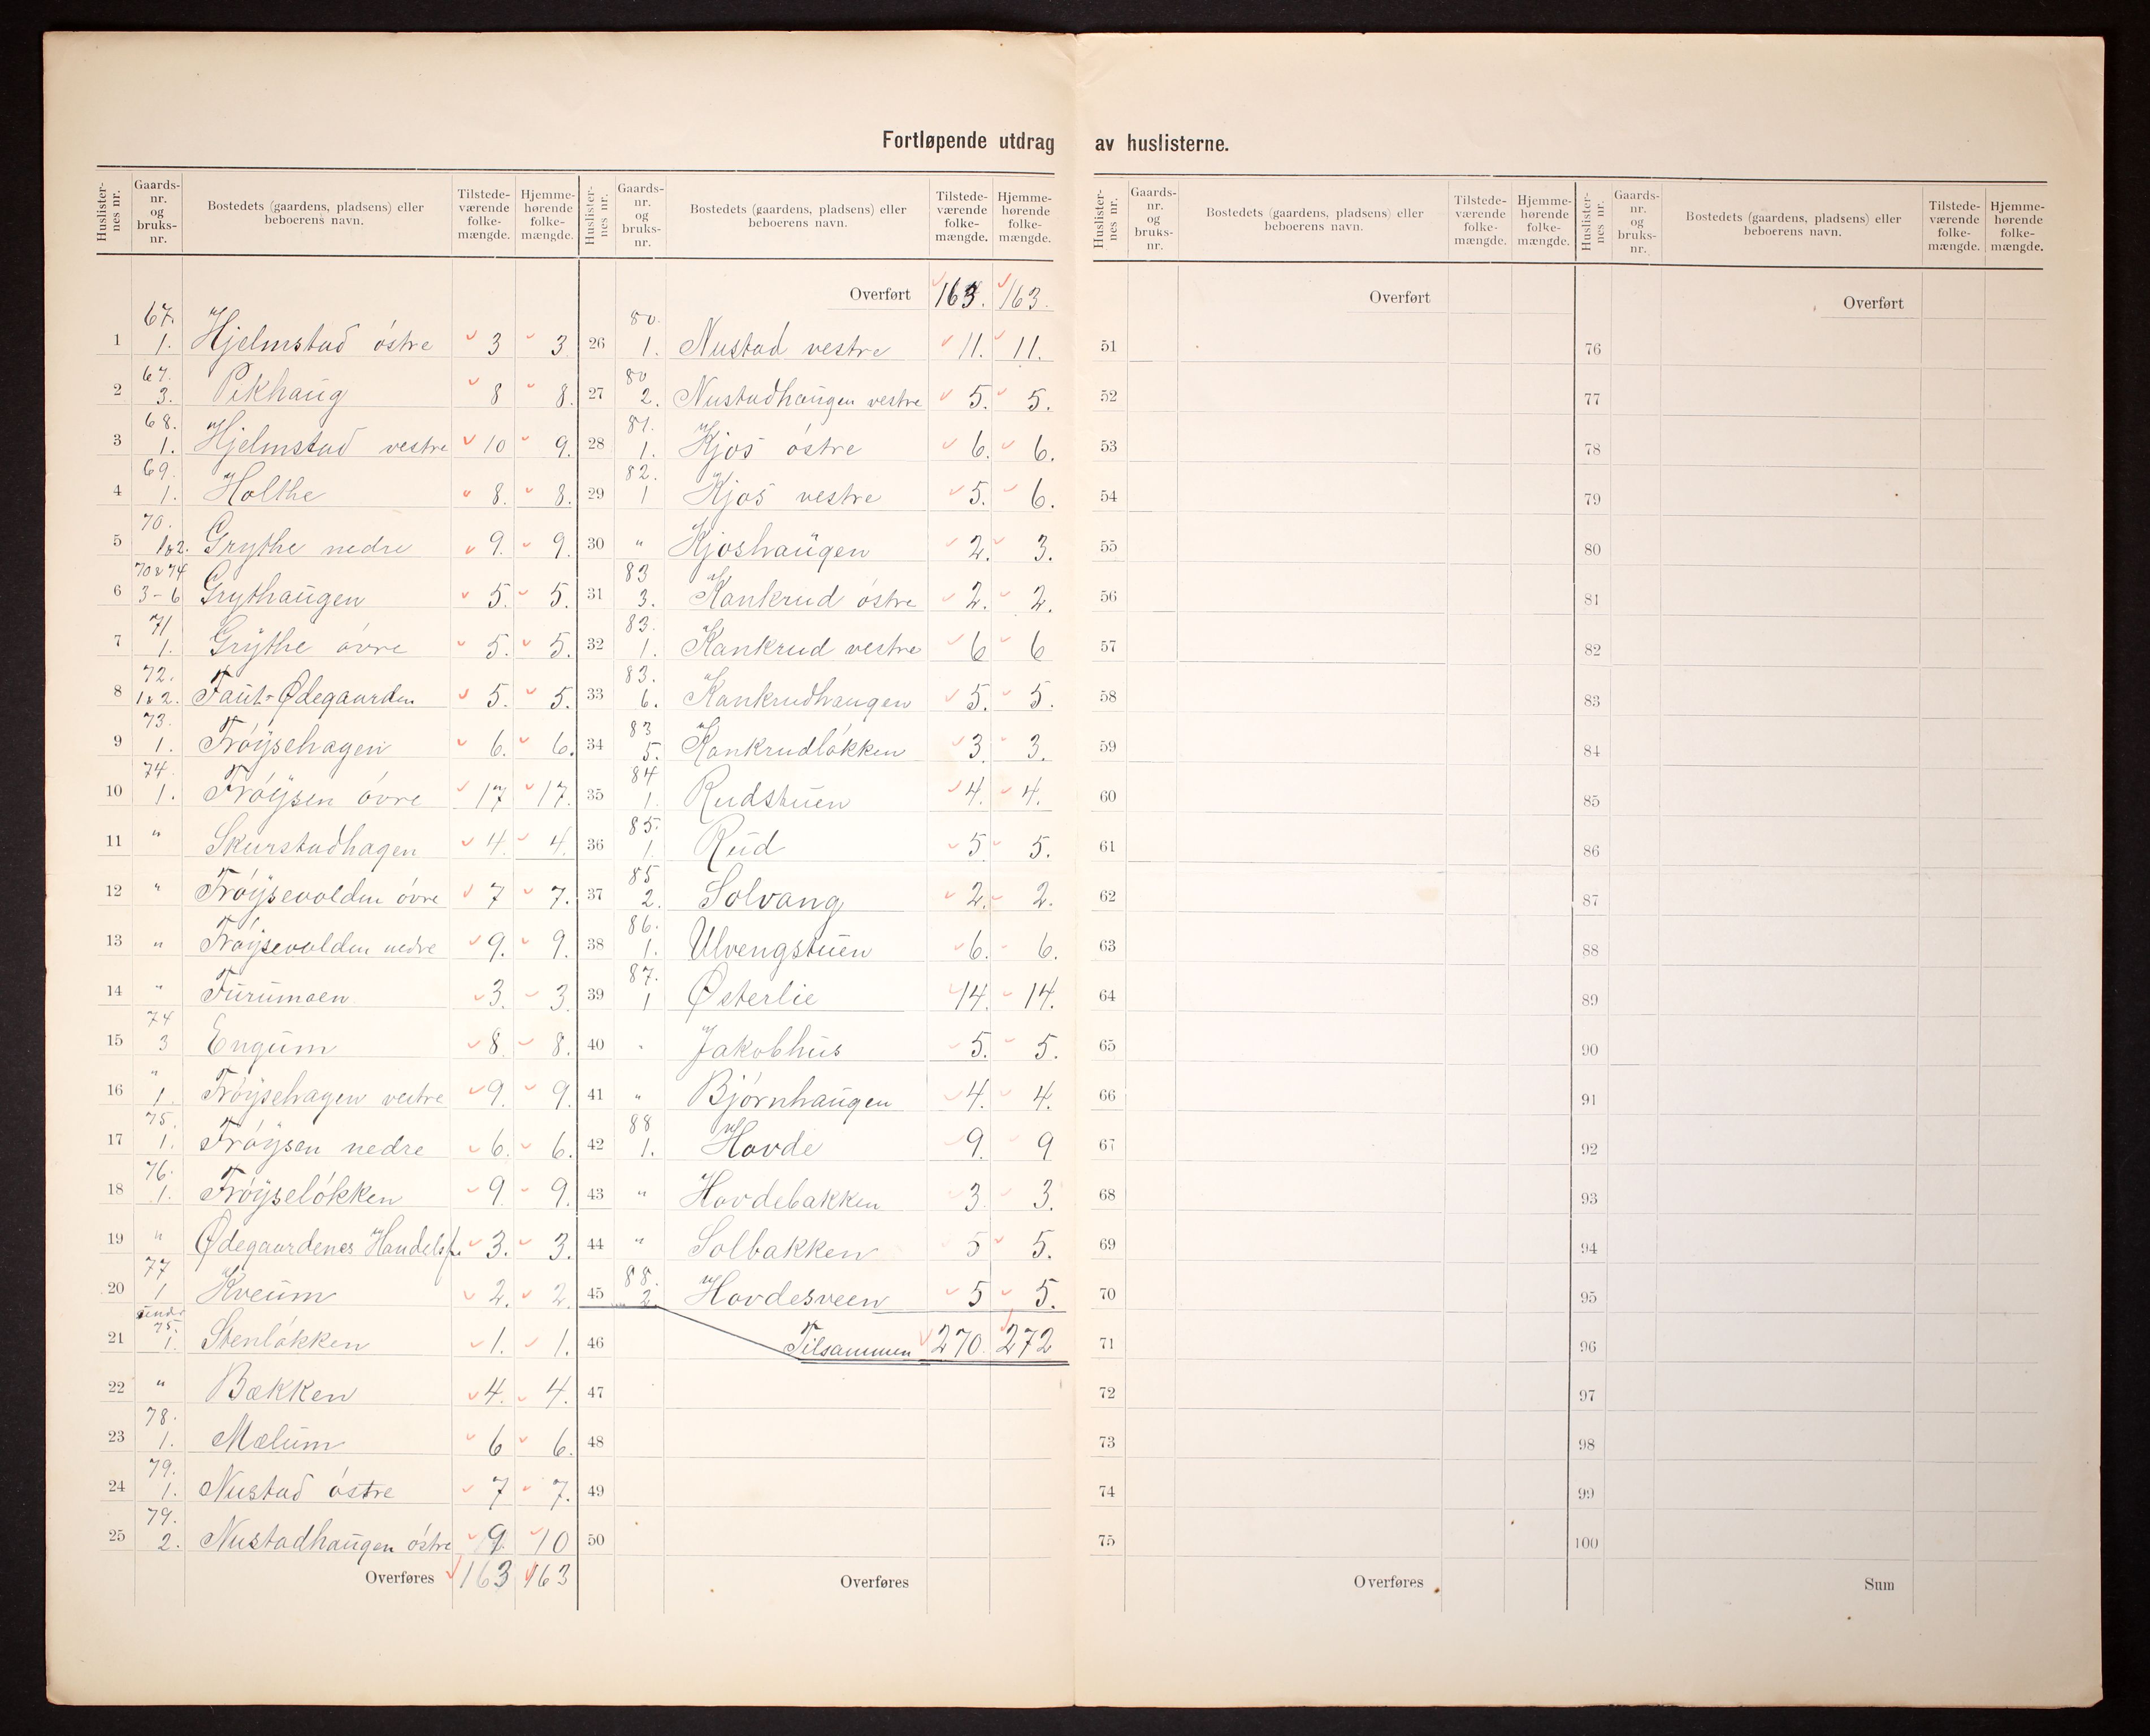 Fortløpende utdrag av huslisterne.
Huslisternes nr. Gaards-nr. og bruks-nr. Bostedets (gaardens, pladsens) eller beboerens navn. Tilstede-værende folke-mængde. Hjemme-hørende folke-mængde.
1 67. 1. Hjelmstad östre 3 3
2 67. 3. Pikhaug 8 8.
3 68. 1. Hjelmstad vestre 10 9.
4 69. 1. Holthe 8. 8.
5 70. 1&2. Grythe nedre 9. 9.
6 70&74 3-6 Grythaugen 5. 5.
7 71 1. Grythe övre 5. 5.
8 72. 1&2. Taut-Ødegaarden 5. 5.
9 73. 1. Tröysehagen 6. 6.
10 74. 1. Tröysen övre 17 17.
11 " Skurstadhagen 4. 4.
12 " Tröysevolden övre 7 7.
13 " Tröysevolden nedre 9. 9.
14 " Furumoen 3. 3.
15 74 3 Engum 8. 8.
16 " 1 Tröysehagen vestre 9. 9.
17 75. 1. Tröysen nedre 6. 6.
18 76. 1. Tröyselökken 9. 9.
19 " Ødegaardenes Handelsf. 3. 3.
20 77 1 Kveum 2. 2.
21 under 75. 1. Stenlökken 1. 1.
22 " Bækken 4. 4.
23 78. 1. Mælum 6 6.
24 79. 1. Nustad östre 7 7.
25 79. 2. Nustadhaugen östre 9. 10
Overføres 163 163
Huslisternes nr. Gaards-nr. og bruks-nr. Bostedets (gaardens, pladsens) eller beboerens navn. Tilstede-værende folke-mængde. Hjemme-hørende folke-mængde.
Overført 163. 163.
26 80. 1. Nustad vestre 11. 11.
27 80 2. Nustadhaugen vestre 5. 5.
28 81. 1. Kjos östre 6. 6.
29 82. 1 Kjos vestre 5. 6.
30 " Kjoshaugen 2. 3.
31 83 3. Kankrud östre 2. 2.
32 83. 1. Kankrud vestre 6 6
33 83. 6. Kankrudhaugen 5. 5.
34 83 5. Kankrudlökken 3. 3.
35 84 1. Rudstuen 4. 4.
36 85. 1. Rud 5. 5.
37 85 2. Solvang 2. 2.
38 86. 1. Ulvengstuen 6. 6.
39 87. 1 Østerlie 14. 14.
40 " Jakobhus 5. 5.
41 " Björnhaugen 4. 4.
42 88 1. Hovde 9. 9
43 " Hovdebakken 3. 3.
44 " Solbakken 5 5.
45 88. 2. Hovdesveen 5 5.
46 Tilsammen 270. 272
47
48
49
50
Overføres
Huslisternes nr. Gaards-nr. og bruks-nr. Bostedets (gaardens, pladsens) eller beboerens navn. Tilstede-værende folke-mængde. Hjemme-hørende folke-mængde.
Overført
51
52
53
54
55
56
57
58
59
60
61
62
63
64
65
66
67
68
69
70
71
72
73
74
75
Overføres
Huslisternes nr. Gaards-nr. og bruks-nr. Bostedets (gaardens, pladsens) eller beboerens navn. Tilstede-værende folke-mængde. Hjemme-hørende folke-mængde.
Overført
76
77
78
79
80
81
82
83
84
85
86
87
88
89
90
91
92
93
94
95
96
97
98
99
100
Sum